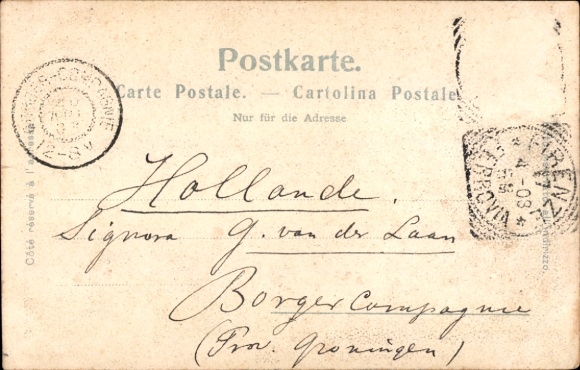 Postkarte.
Carte Postale. — Cartolina Postale
Nur für die Adresse
Côté réservé à l'adresse
FIRENZE
FERROVIA
4-03
Hollande.
Signora G. van der Laan
Borgercompagnie
(Prov. Groningen)